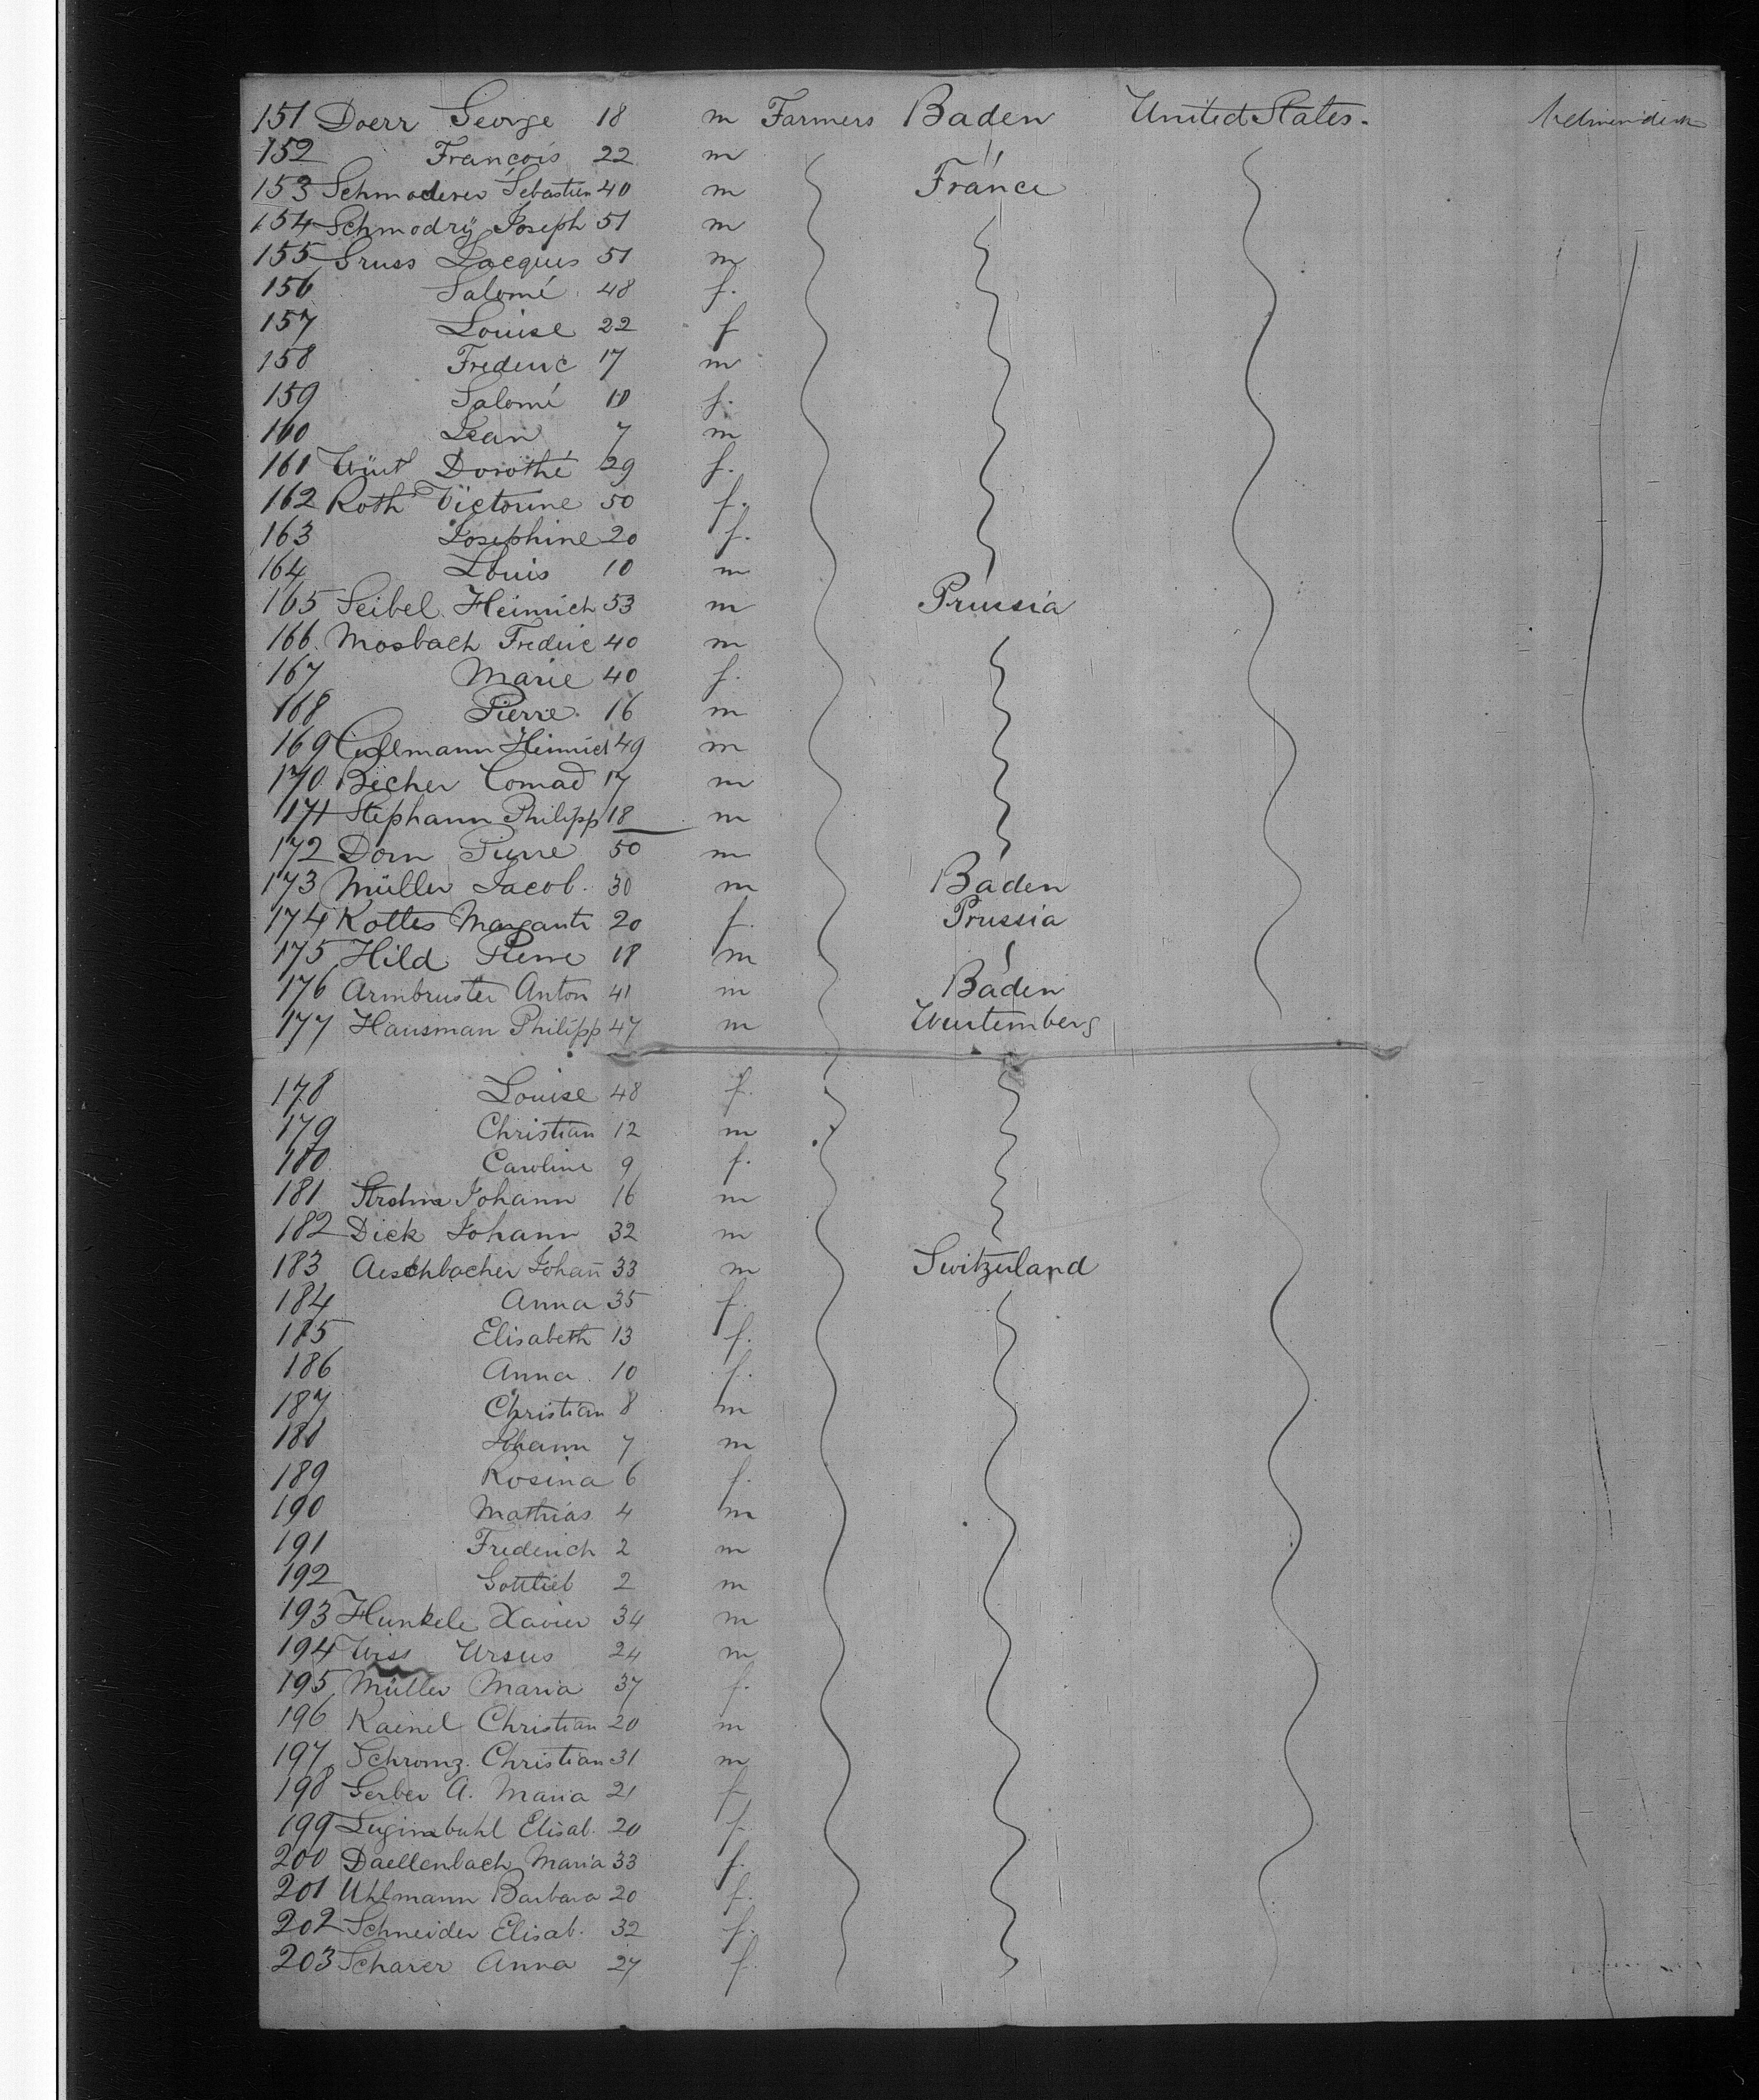 151 Doerr George 18 m Farmers Baden United States.
152 François 22 m
153 Schmoderer Sebastien 40 m France
154 Schmodry Joseph 51 m
155 Gruss Jacques 51 m
156 Salomé 48 f.
157 Louise 22 f
158 Frederic 17 m
159 Salomé 10 f.
160 Jean 7 m
161 Dorothé 29 f.
162 Roth Victorine 50 f.
163 Josephine 20 f.
164 Louis 10 m
165 Seibel Heinrich 53 m Prussia
166. Mosbach Frederic 40 m
167 Marie 40 f.
168 Pierre. 16 m
169 Heinrich 49 m
170 Becher Conrad 17 m
171 Stephann Philipp 18 m
172 Dorn Pierre 50 m
173 Müller Jacob. 30 m Baden
174 Kottes 20 f. Prussia
175 Hild Pierre 18 m
176 Armbruster Anton 41 m Baden
177 Hausman Philipp 47 m Wurtemberg
178 Louise 48 f.
179 Christian 12 m
180 Caroline 9 f.
181 Johann 16 m
182 Dick Johann 32 m
183 Aeschbacher Johan̄ 33 m Switzerland
184 Anna 35 f.
185 Elisabeth 13 f.
186 Anna 10 f.
187 Christian 8 m
188 Johann 7 m
189 Rosina 6 f.
190 Mathias 4 m
191 Frederich 2 m
192 Gottlieb 2 m
193 Hunkele Xavier 34 m
194 Wiss Ursus 24 m
195 Müller Maria 37 f.
196 Kaenel Christian 20 m
197 Schromz. Christian 31 m
198 Gerber A. Maria 21 f
199 Luginbuhl Elisab. 20 f
200 Daellenbach Maria 33 f.
201 Uhlmann Barbara 20 f.
202 Schneider Elisab. 32 f.
203 Scharer Anna 27 f.